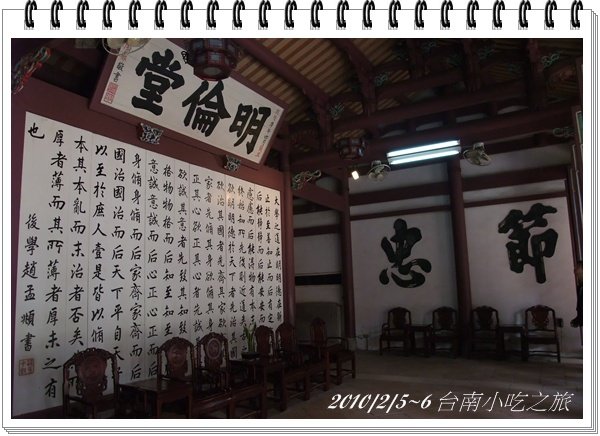 明倫堂
敬書
大學之道在明明德在
止於至善知止而后有定
后能靜靜而后能安安
慮慮而后能得物有本
終始知所先後則近道
欲明明德於天下者先治其
欲治其國者先齊其家
家者先脩其身欲脩其身
正其心欲正其心者先誠
欲誠其意者先致其知
格物物格而后知至知至
意誠意誠而后心正心正而
身脩身脩而后家齊家齊而后
國治國治而后天下平自天子
以至於庶人壹是皆以脩
本其本亂而末治者否矣
厚者薄而其所薄者厚未之有
也
後學趙孟頫書
節
忠
2010/2/5~6 台南小吃之旅